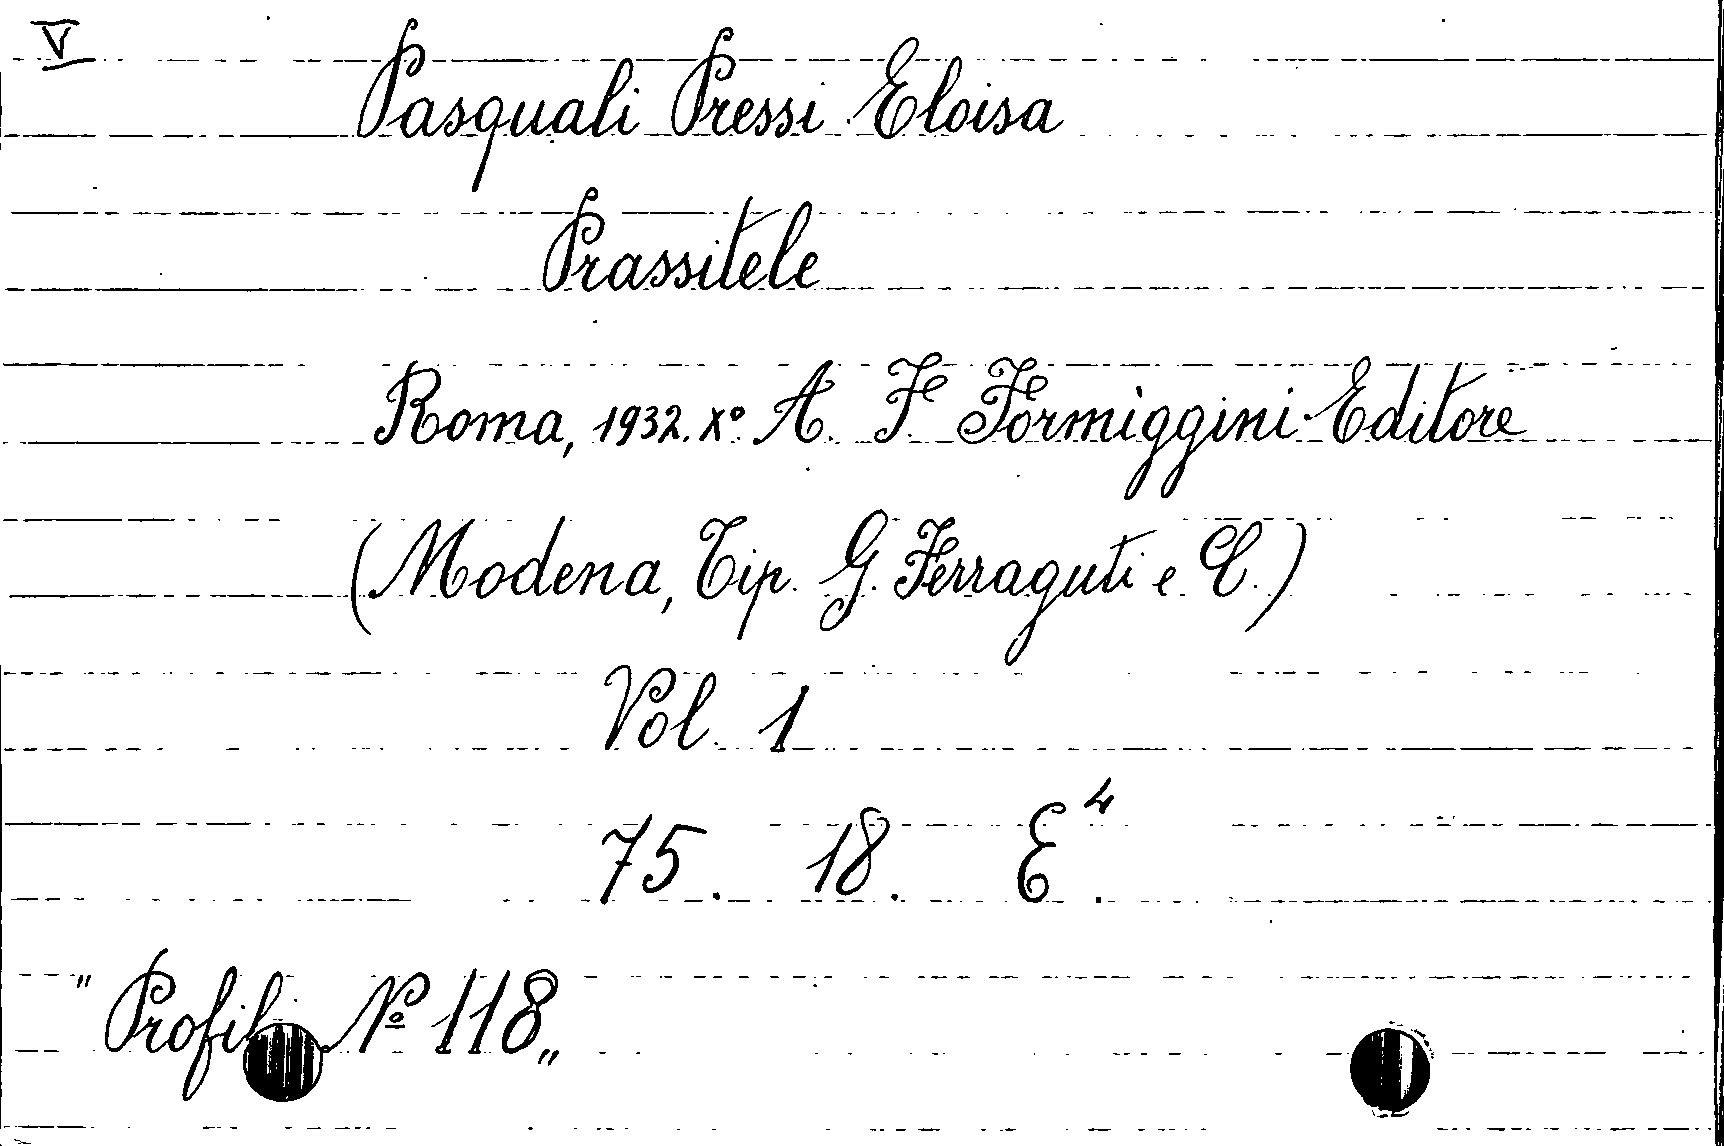 V
Pasquali Pressi Eloisa
Prassitele
Roma, 1932. Xº. A. F. Formiggini Editore
(Modena, Tip. G. Ferraguti e C.)
Vol. 1
75. 18. E⁴.
"Profili Nº 118„